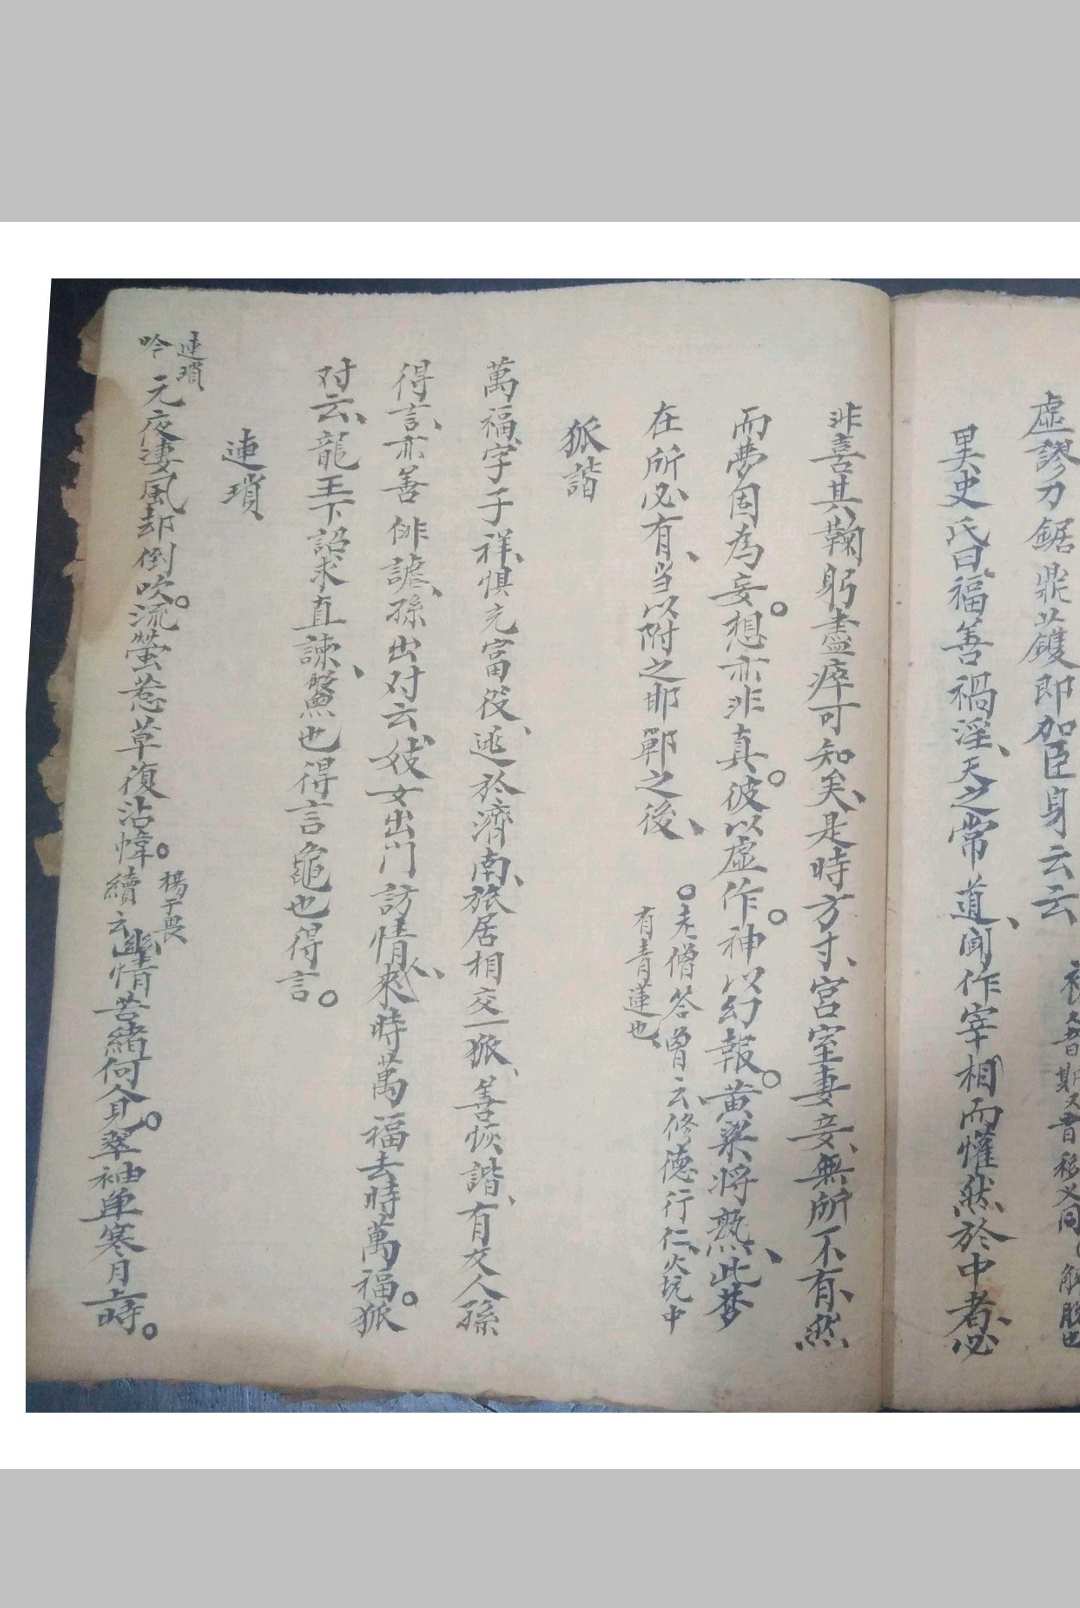 虛謬刀鋸鼎鑊即加臣身云云
異史氏曰福善禍淫、天之常道、聞作宰相而懽然於中者、必
非喜其鞠躬盡瘁可知矣、是時方寸、宮室妻妾、無所不有、然
而夢固為妄。想亦非真。彼以虛作。神以幻報。黃粱將熟、此夢
在所必有、當以附之邯鄲之後、
。老僧答曾云修德行仁、火坑中
有青蓮也、
狐諧
萬福、字子祥、惧充富役、逃於濟南、旅居相交一狐、善恢諧、有交人孫
得言、亦善俳謔、孫出对云、妓女出門訪情人、來時萬福去時萬福。狐
对云、龍王下詔求直諫、鱉也得言龜也得言。
連瑣
連瑣
吟
元夜淒風却倒吹。流螢惹草復沾幃。
楊于畏
續云
幽情苦緒何人見。翠袖单寒月上時。